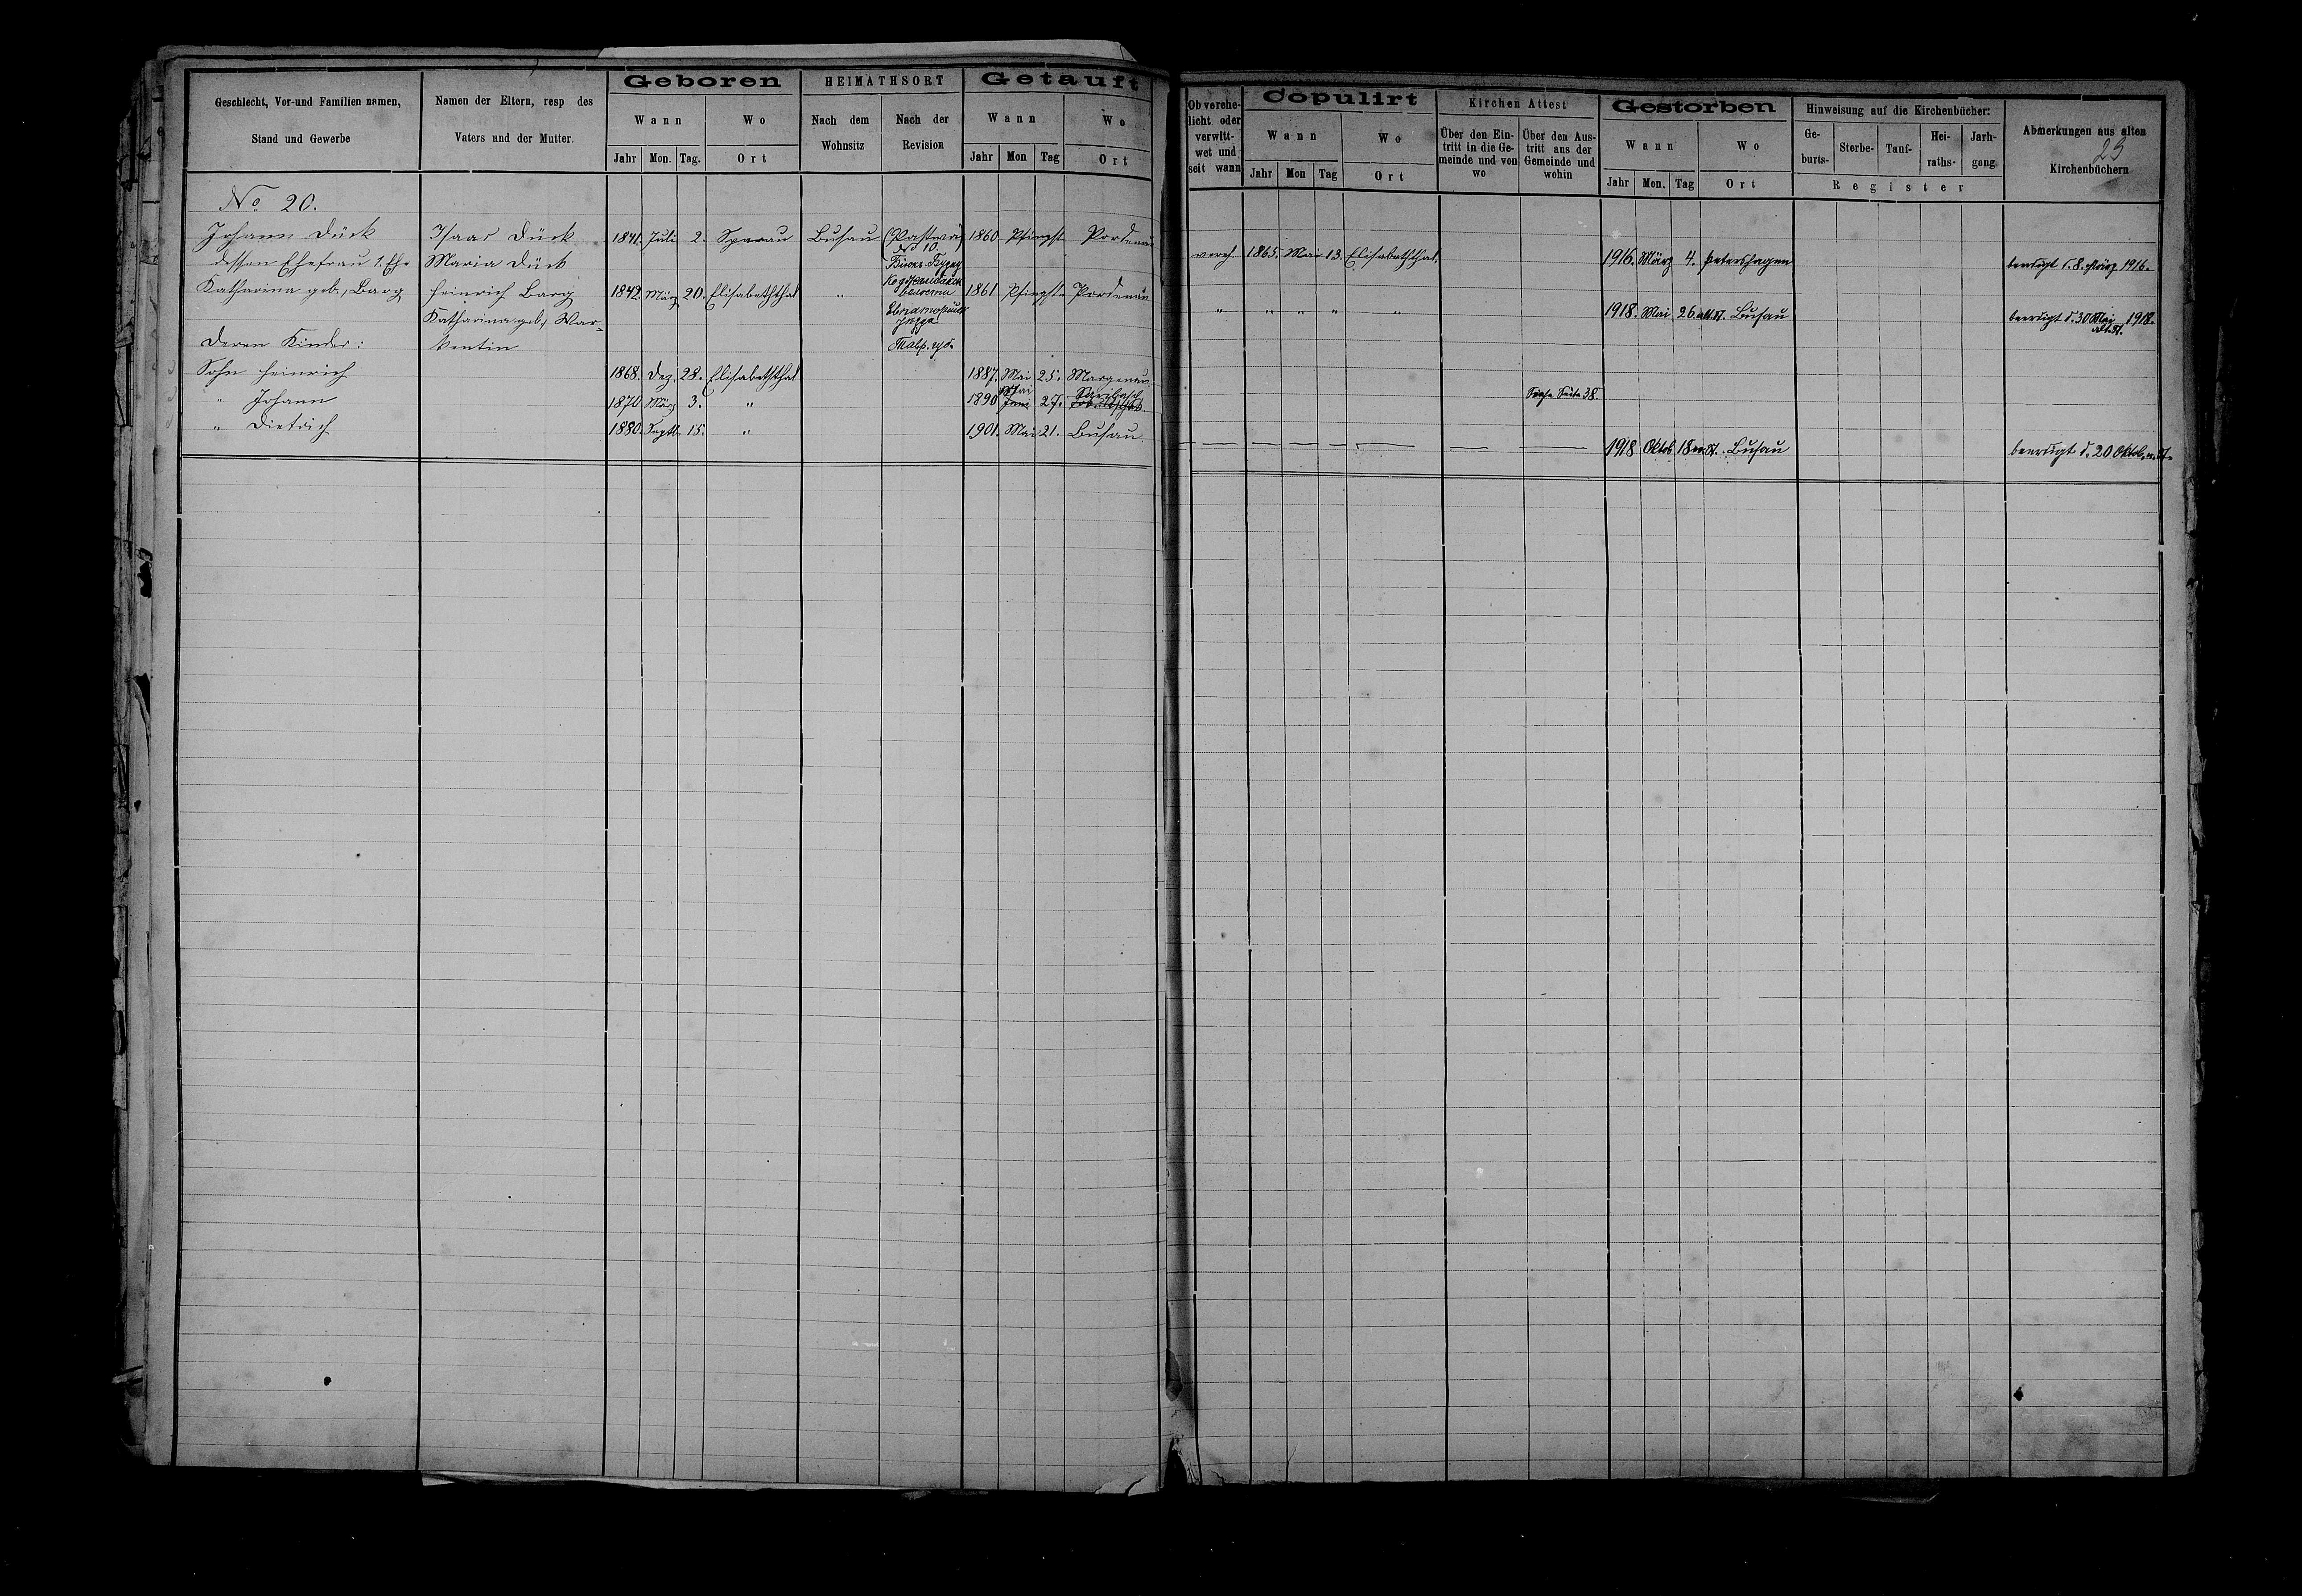 Geschlecht, Vor-und Familien namen,
Stand und Gewerbe
Namen der Eltern, resp des
Vaters und der Mutter.
Geboren
Wann
Wo
Jahr Mon. Tag.
Ort
HEIMATHSORT
Nach dem
Wohnsitz
Nach der
Revision
Getauft
Wann
Wo
Jahr Mon Tag
Ort
No 20.
Johann Dück Isaac Dück 1841. Juli 2. Sparau Busau 1860 Pfingst Pordenau
dessen Ehefrau 1. Ehe Maria Dück
Биюкъ-Бураш
Katharina geb. Barg Heinrich Barg 1842. März 20. Elisabeththal " волости 1861 Pfingsten Pordenau
Katharina geb. War-
уезда
Deren Kinder: kentin Тавр. губ.
Sohn Heinrich 1868. Dez. 28. Elisabeththal 1887. Mai 25. Margenau
" Johann 1870 März 3. " 1890 Mai Juni 27.
" Dietrich 1880. Septb. 15. " 1901. Mai 21. Busau.
Ob verehe-
licht oder
verwitt-
wet und
seit wann
Copulirt
Wann
Wo
Jahr Mon Tag
Ort
Kirchen Attest
Über den Ein-
tritt in die Ge-
meinde und von
wo
Über den Aus-
tritt aus der
Gemeinde und
wohin
Gestorben
Wann
Wo
Jahr Mon. Tag
Ort
Hinweisung auf die Kirchenbücher:
Ge-
burts-
Sterbe-
Tauf-
Hei-
raths-
Jarh-
gang.
Register
Abmerkungen aus alten
23
Kirchenbüchern
vereh. 1865. Mai 13. Elisabeththal. 1916. März 4. Petershagen beerdigt d. 8. März 1916.
" " " " " 1918. Mai 26. alt. St. Busau beerdigt d. 30 Mai 1918.
alt. St.
Siehe Seite 38.
1918 Oktob. 18 n. St. Busau beerdigt d. 20 Oktob. n. St.